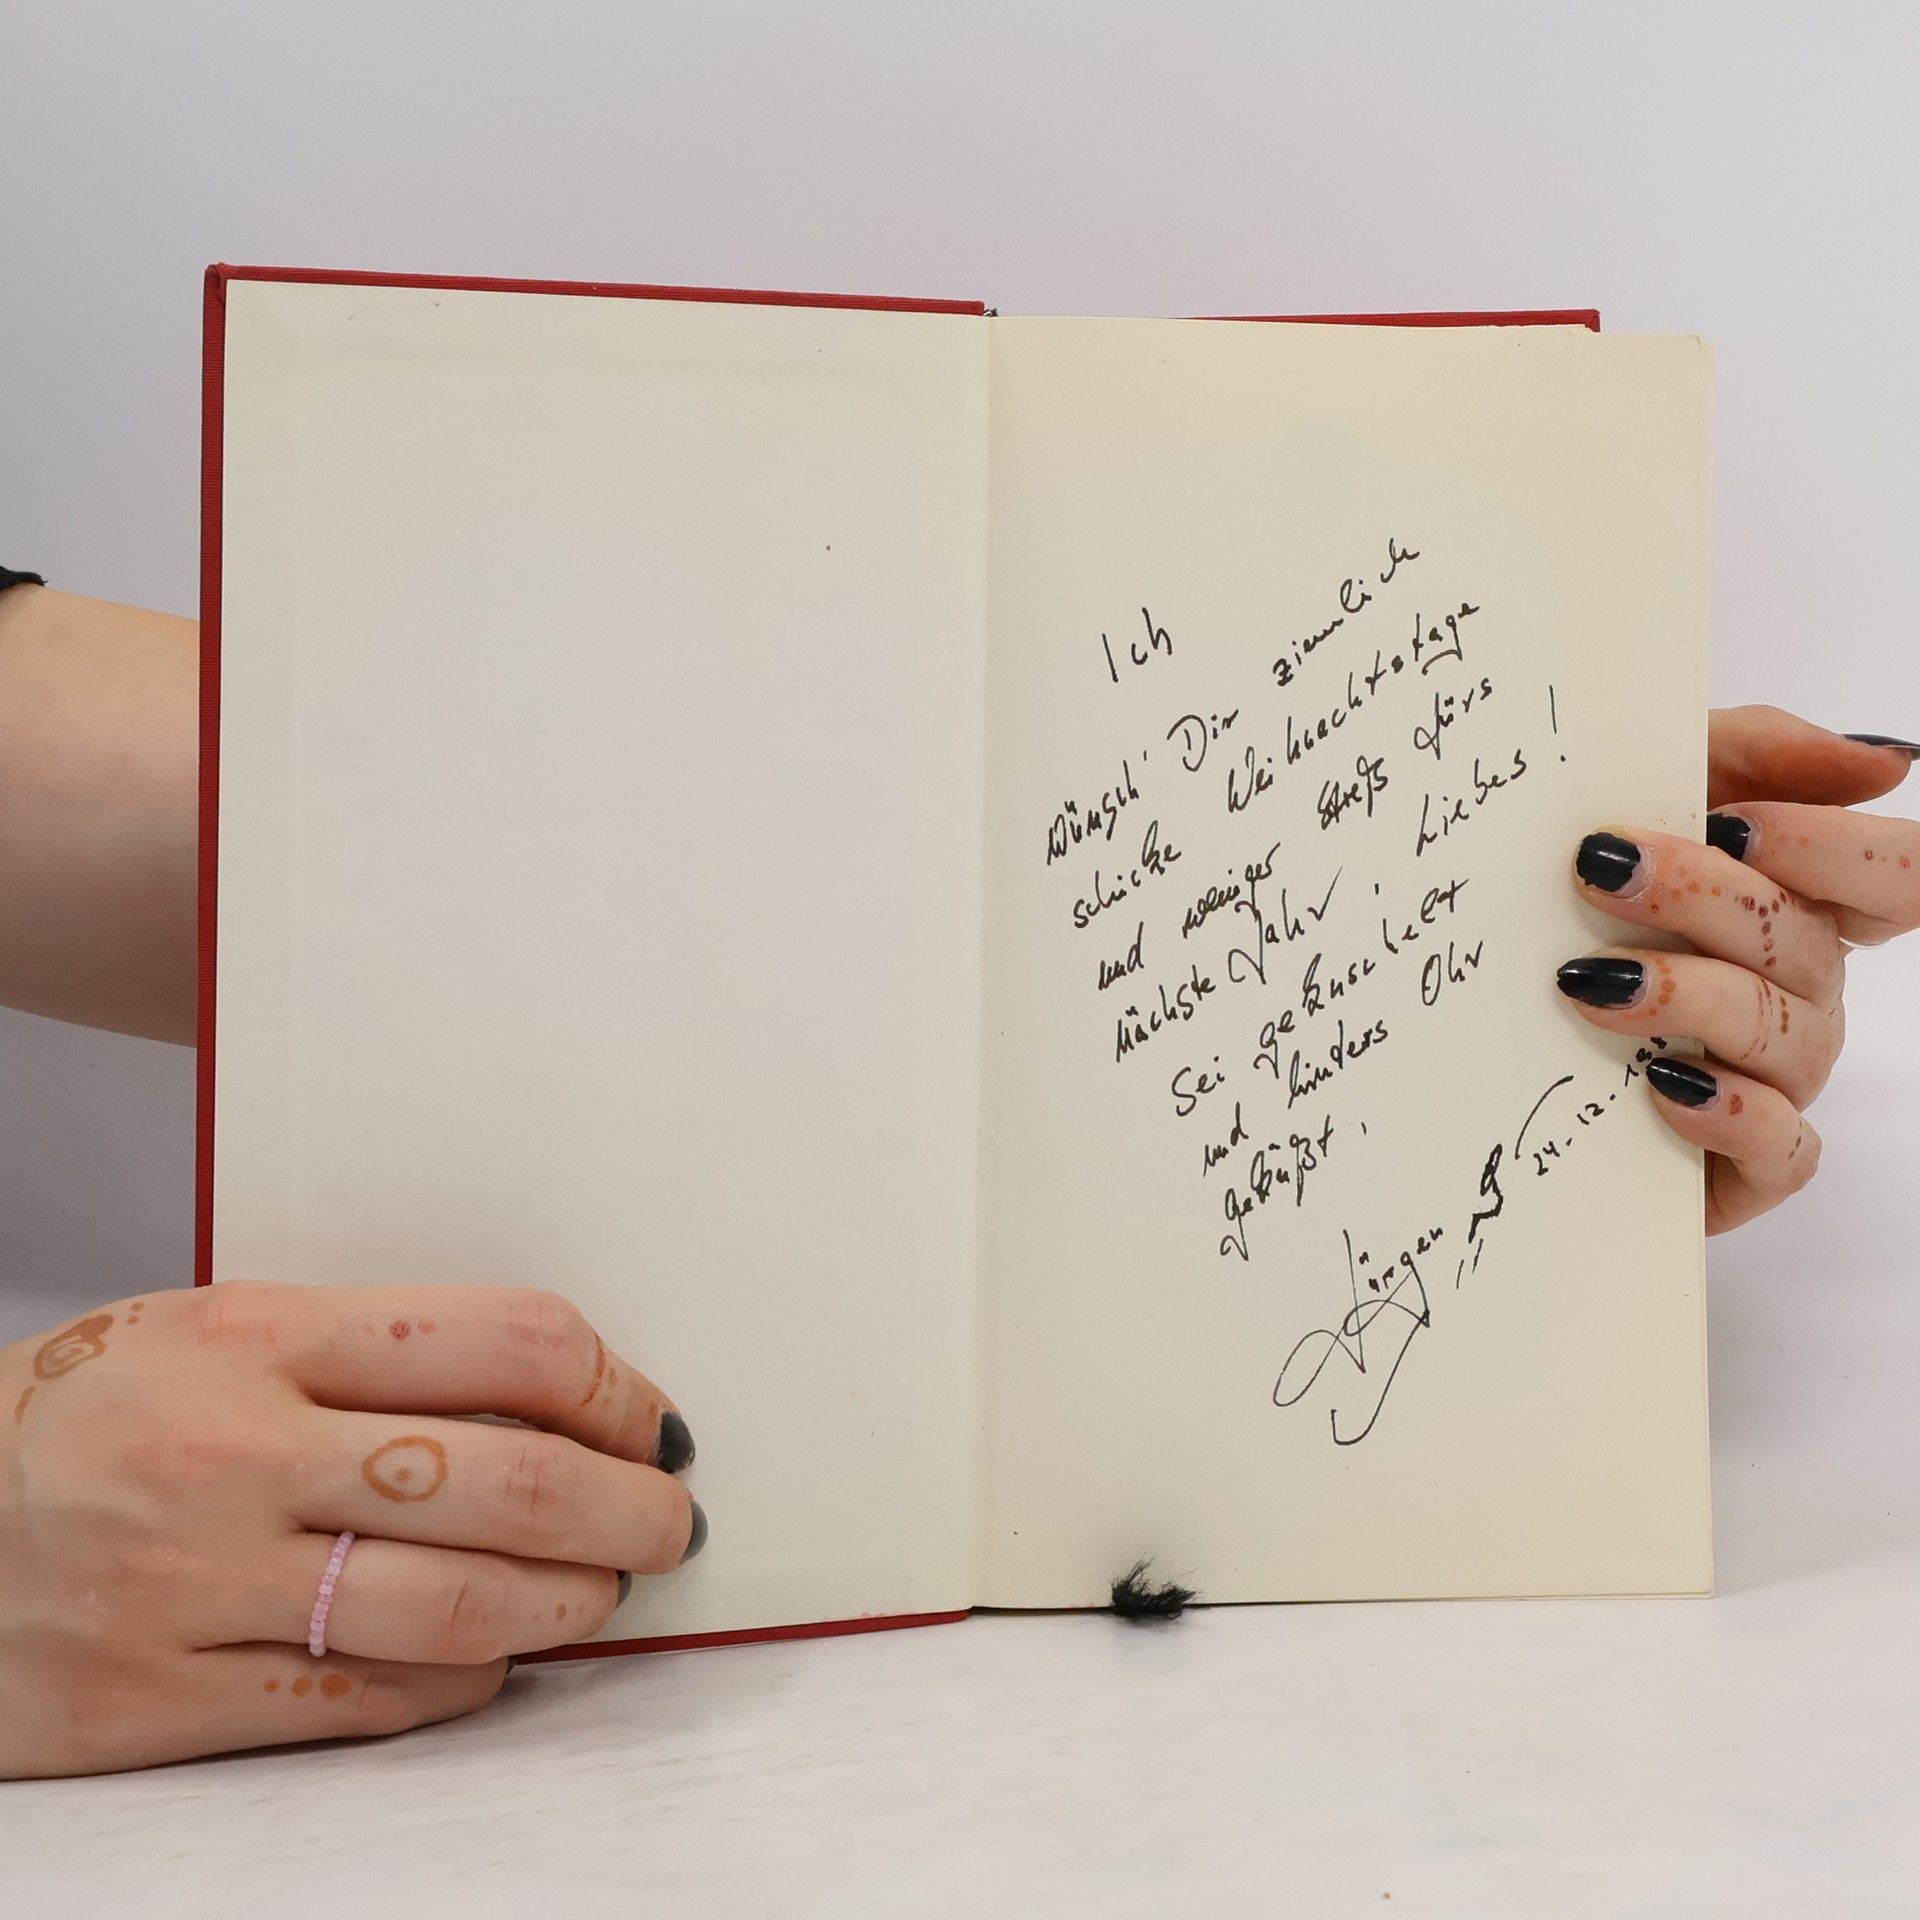 Ich
wünsch' Dir ziemlich
schicke Weihnachtstage
und weniger Streß fürs
nächste Jahr, Liebes!
Sei geknuschelt
und hinters Ohr
geküßt,
Jürgen
24.12.198